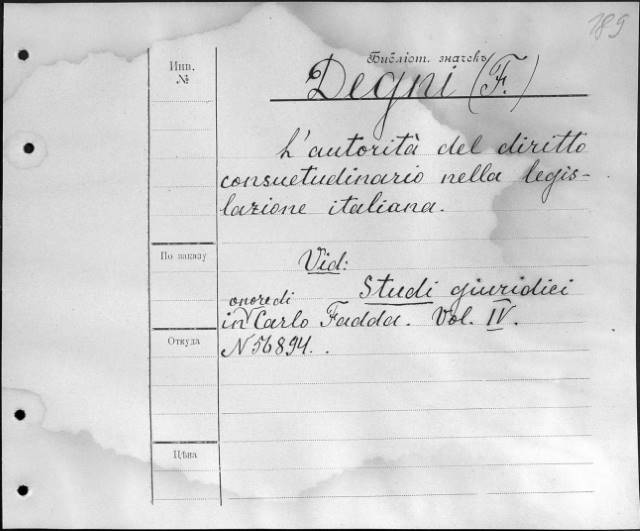 189
Библіот. значекъ
Инв.
№
Degni (F.)
L'autorità del diritto
consuetudinario nella legis-
lazione italiana.
По заказу
Vid:
Studi giuridici
onore di
in Carlo Fadda. Vol. IV.
Откуда
N 56894.
Цѣна